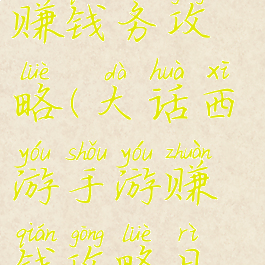 赚钱务攻
lüè dà huà xī
略(大话西
yóu shǒu yóu zhuàn
游手游赚
qián gōng lüè rì
钱攻略日